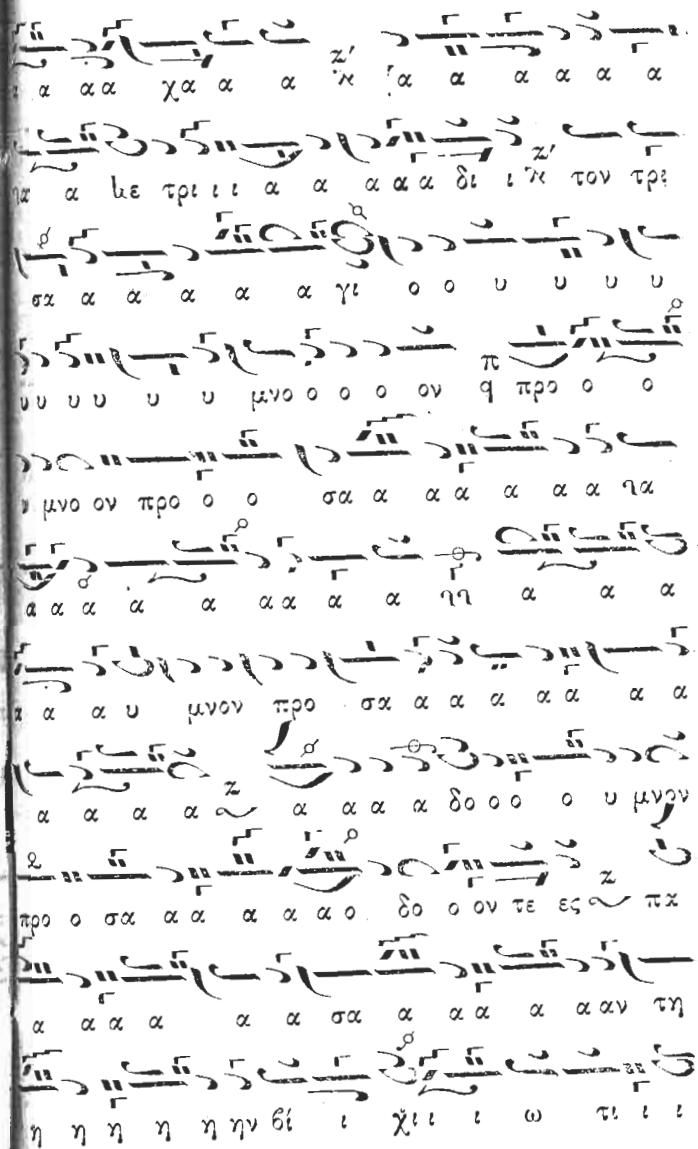 α αα χα α α α α α α α α
α με τρι ι ι α α α α α δι ι τον τρι
σα α α α α α γι ο ο υ υ υ υ
υ υ υ υ υ υ μνο ο ο ο ον π q προ ο ο
μνο ον προ ο ο σα α α α α α α
α α α α α α α α α α α α α
α α υ μνον προ σα α α α α α α α
α α α α z α α α α δο ο ο ο υ μνον
προ ο σα α α α α α ο δο ο ον τε ες z πα
α α α α α α σα α α α α α αν τη
η η η η η ην βί ι χι ι ι ω τι ι ι